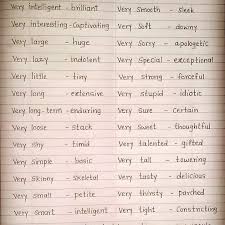 Very intelligent - brilliant
Very interesting - Captivating
Very large - huge
Very lazy - indolent
Very little - tiny
Very long - extensive
Very long-term - enduring
Very loose - slack
Very shy - timid
Very Simple - basic
Very Skinny - Skeletal
Very small - petite
Very smart - intelligent
Very Smooth - Sleek
Very Soft - downy
Very Sorry - apologetic
Very Special - exceptional
Very strong - forceful
Very stupid - idiotic
Very Sure - Certain
Very Sweet - thoughtful
Very talented - gifted
Very tall - towering
Very tasty - delicious
Very thirsty - parched
Very tight - Constricting